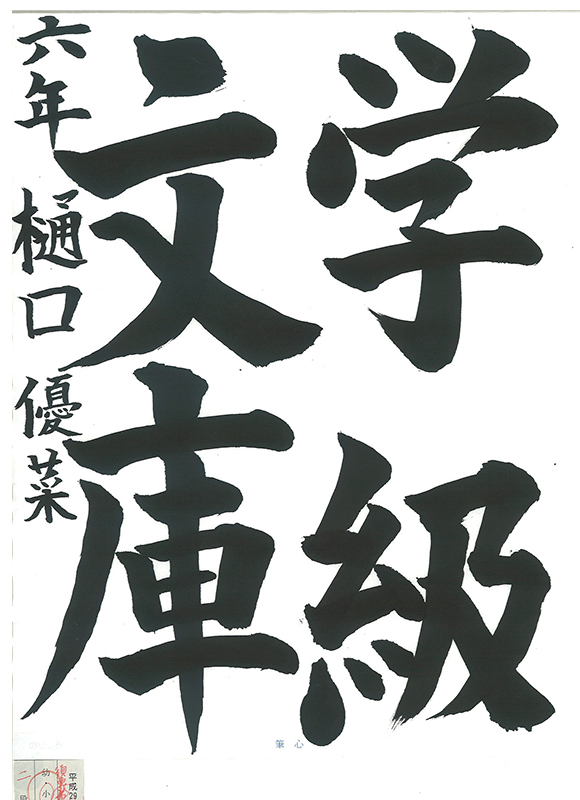 学級
文庫
六年 樋口 優菜
筆心
平成29
幼・小
二段